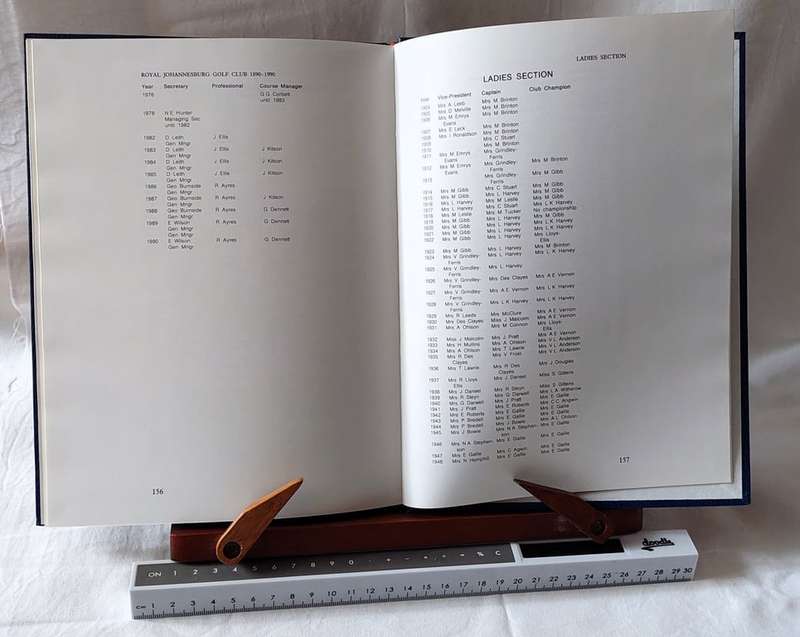 ROYAL JOHANNESBURG GOLF CLUB 1890-1990
Year Secretary Professional Course Manager
1976 G.G. Corbett
until 1983
1979 N.E. Hunter
Managing Sec.
until 1982
1982 D. Leith J. Ellis
Gen. Mngr.
1983 D. Leith J. Ellis J. Kitson
Gen. Mngr.
1984 D. Leith J. Ellis J. Kitson
Gen. Mngr.
1985 D. Leith J. Ellis J. Kitson
Gen. Mngr.
1986 Geo. Burnside R. Ayres
Gen. Mngr.
1987 Geo. Burnside R. Ayres J. Kitson
Gen. Mngr.
1988 Geo. Burnside R. Ayres G. Dennett
Gen. Mngr.
1989 E. Wilson R. Ayres G. Dennett
Gen. Mngr.
1990 E. Wilson R. Ayres G. Dennett
Gen. Mngr.
156
LADIES SECTION
LADIES SECTION
Year Vice-President Captain Club Champion
Mrs A. Leeb Mrs M. Brinton
Mrs D. Melville Mrs M. Brinton
Mrs M. Emrys Mrs M. Brinton
Evans
Mrs E. Mrs M. Brinton
Mrs I. Ronaldson Mrs M. Brinton
1909 Mrs C. Stuart
1910 Mrs M. Brinton
1911 Mrs M. Emrys Mrs Grindley-
Evans Ferris
1912 Mrs M. Emrys Mrs Grindley- Mrs M. Brinton
Evans Ferris
1913 Mrs Grindley- Mrs M. Gibb
Ferris
1914 Mrs M. Gibb Mrs C. Stuart Mrs M. Gibb
1915 Mrs M. Gibb Mrs L. Harvey Mrs M. Gibb
1916 Mrs L. Harvey Mrs M. Leslie Mrs M. Gibb
1917 Mrs L. Harvey Mrs C. Stuart Mrs L.K. Harvey
1918 Mrs M. Leslie Mrs M. Tucker No championship
1919 Mrs M. Gibb Mrs L. Harvey Mrs M. Gibb
1920 Mrs M. Gibb Mrs L. Harvey Mrs L.K. Harvey
1921 Mrs M. Gibb Mrs L. Harvey Mrs L.K. Harvey
1922 Mrs M. Gibb Mrs L. Harvey Mrs Lloys
Ellis
1923 Mrs M. Gibb Mrs L. Harvey Mrs M. Brinton
1924 Mrs V. Grindley- Mrs L. Harvey Mrs L.K. Harvey
Ferris
1925 Mrs V. Grindley- Mrs L. Harvey
Ferris
1926 Mrs V. Grindley- Mrs Des Clayes Mrs A.E. Vernon
Ferris
1927 Mrs V. Grindley- Mrs A.E. Vernon Mrs L.K. Harvey
Ferris
1928 Mrs V. Grindley- Mrs L.K. Harvey Mrs L.K. Harvey
Ferris
1929 Mrs R. Leeds Mrs McClure Mrs A.E. Vernon
1930 Mrs Des Clayes Miss J. Malcolm Mrs A.E. Vernon
1931 Mrs A. Ohlson Mrs M. Connon Mrs Lloys
Ellis
1932 Miss J. Malcolm Mrs J. Pratt Mrs A.E. Vernon
1933 Mrs H. Mullins Mrs A. Ohlson Mrs V.L. Anderson
1934 Mrs A. Ohlson Mrs T. Lawrie Mrs V.L. Anderson
1935 Mrs R. Des Mrs V. Frost Mrs V.L. Anderson
Clayes
1936 Mrs T. Lawrie Mrs R. Des Mrs J. Douglas
Clayes
1937 Mrs R. Lloys Mrs J. Darwel Miss S. Gittens
Ellis
1938 Mrs J. Darwel Mrs R. Steyn Miss S. Gittens
1939 Mrs R. Steyn Mrs G. Darwell Mrs L.A. Witherow
1940 Mrs G. Darwell Mrs J. Pratt Mrs E. Gaille
1941 Mrs J. Pratt Mrs E. Roberts Mrs C.C. Angwin
1942 Mrs E. Roberts Mrs E. Gaille Mrs E. Gaille
1943 Mrs P. Bredell Mrs E. Gaille Mrs E. Gaille
1944 Mrs P. Bredell Mrs J. Bowie Mrs A.L. Ohlson
1945 Mrs J. Bowie Mrs N.A. Stephen- Mrs E. Gaille
son
1946 Mrs N.A. Stephen- Mrs E. Gaille Mrs E. Gaille
son
1947 Mrs E. Gaille Mrs C. Agwin Mrs E. Gaille
1948 Mrs N. Hemphill Mrs E. Gaille Mrs E. Gaille
157
ON 1 2 3 4 5 6 7 8 9 0 . + - × ÷ = % C
doodle
cm 1 2 3 4 5 6 7 8 9 10 11 12 13 14 15 16 17 18 19 20 21 22 23 24 25 26 27 28 29 30